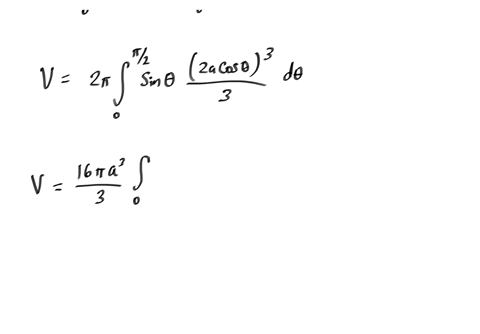 V = 2π ∫₀^{π/2} Sinθ (2a Cosθ)³/3 dθ
V = 16πa³/3 ∫₀